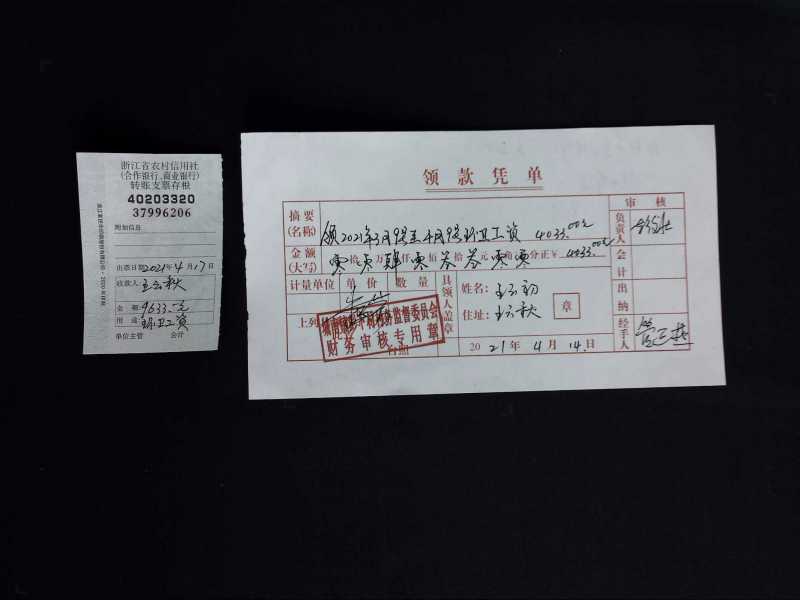 浙江省农村信用社
(合作银行、商业银行)
转账支票存根
40203320
37996206
附加信息
出票日期2021年4月17日
收款人:王云秋
金额:9633.-元
用途:环卫工资
单位主管 会计
领款凭单
摘要(名称) 领2021年3月9号至4月9号环卫工资 4033.00元
金额(大写) 零拾零万肆仟零佰叁拾叁元零角零分正¥4033.00元
计量单位 单价 数量
上列
监督委员会
财务审核专用章
具领人盖章
姓名:王云初
住址:王云秋
章
2021年4月14日
审核
负责人
会计
出纳
经手人